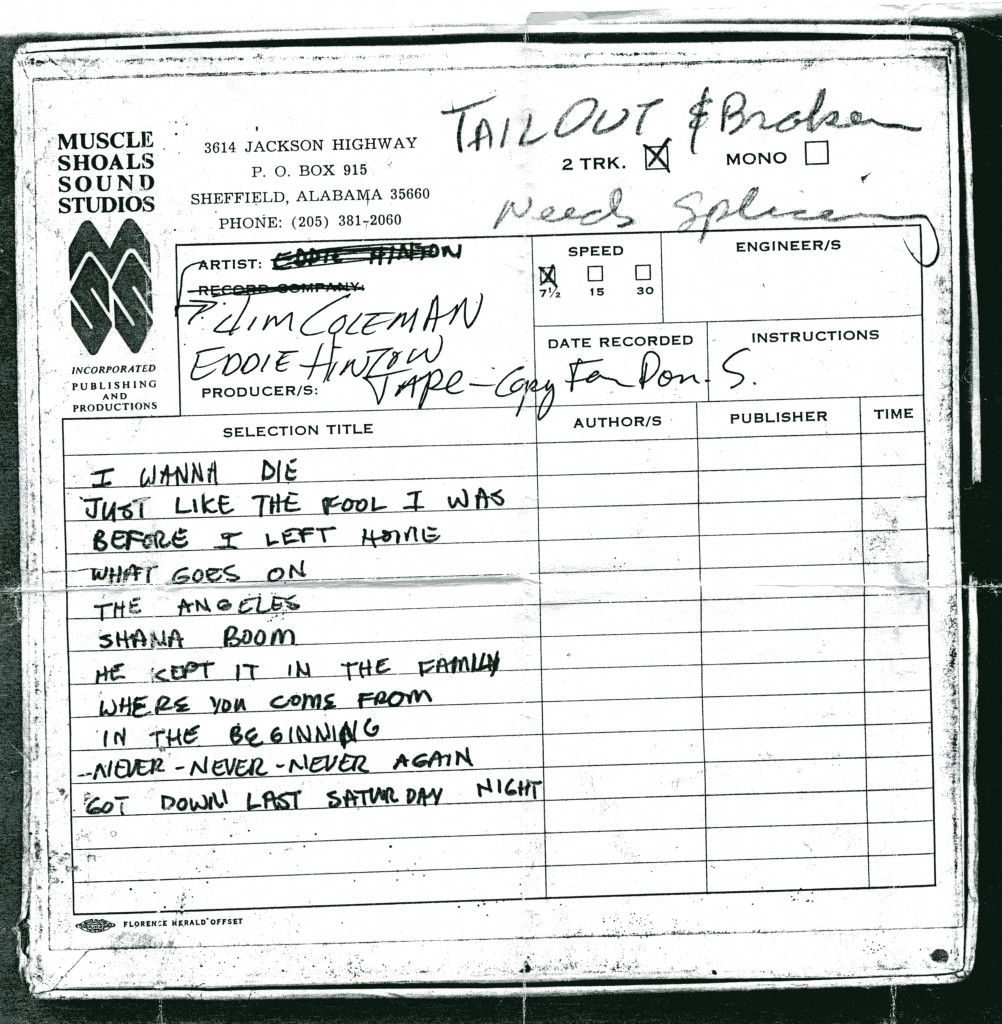 TAIL OUT & Broken
MUSCLE
SHOALS
SOUND
STUDIOS
3614 JACKSON HIGHWAY
P. O. BOX 915
SHEFFIELD, ALABAMA 35660
PHONE: (205) 381-2060
2 TRK. ☒ MONO ☐
Needs Splicing
INCORPORATED
PUBLISHING
AND
PRODUCTIONS
ARTIST: EDDIE HINTON
RECORD COMPANY:
JIM COLEMAN
EDDIE HINTON
PRODUCER/S:
TAPE - Copy For Don. S.
SPEED
7½ 15 30
ENGINEER/S
DATE RECORDED
INSTRUCTIONS
SELECTION TITLE AUTHOR/S PUBLISHER TIME
I WANNA DIE
JUST LIKE THE FOOL I WAS
BEFORE I LEFT HOME
WHAT GOES ON
THE ANGELES
SHANA BOOM
HE KEPT IT IN THE FAMILY
WHERE YOU COME FROM
IN THE BEGINNING
-NEVER-NEVER-NEVER AGAIN
GOT DOWN LAST SATURDAY NIGHT
FLORENCE HERALD OFFSET